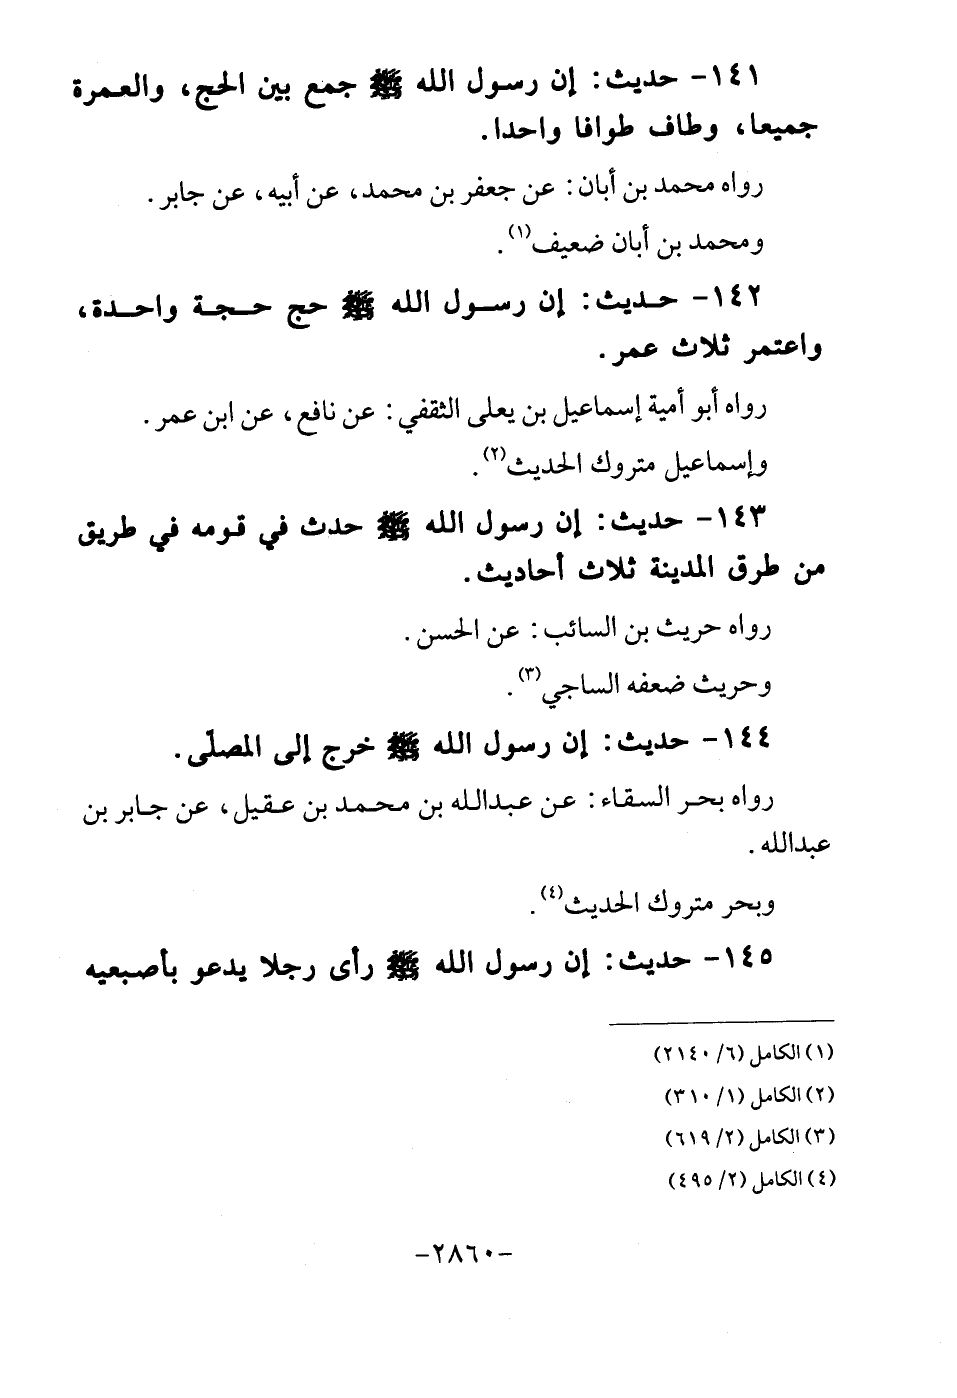 ١٤١- حديث: إن رسول الله ﷺ جمع بين الحج، والعمرة
جميعا، وطاف طوافا واحدا.
رواه محمد بن أبان: عن جعفر بن محمد، عن أبيه، عن جابر.
ومحمد بن أبان ضعيف(١).
١٤٢- حديث: إن رسول الله ﷺ حج حجة واحدة،
واعتمر ثلاث عمر.
رواه أبو أمية إسماعيل بن يعلى الثقفي: عن نافع، عن ابن عمر.
وإسماعيل متروك الحديث(٢).
١٤٣- حديث: إن رسول الله ﷺ حدث في قومه في طريق
من طرق المدينة ثلاث أحاديث.
رواه حريث بن السائب: عن الحسن.
وحريث ضعفه الساجي(٣).
١٤٤- حديث: إن رسول الله ﷺ خرج إلى المصلّى.
رواه بحر السقاء: عن عبدالله بن محمد بن عقيل، عن جابر بن
عبدالله.
وبحر متروك الحديث(٤).
١٤٥- حديث: إن رسول الله ﷺ رأى رجلا يدعو بأصبعيه
(١) الكامل (٦/ ٢١٤٠)
(٢) الكامل (١/ ٣١٠)
(٣) الكامل (٢/ ٦١٩)
(٤) الكامل (٢/ ٤٩٥)
-٢٨٦٠-